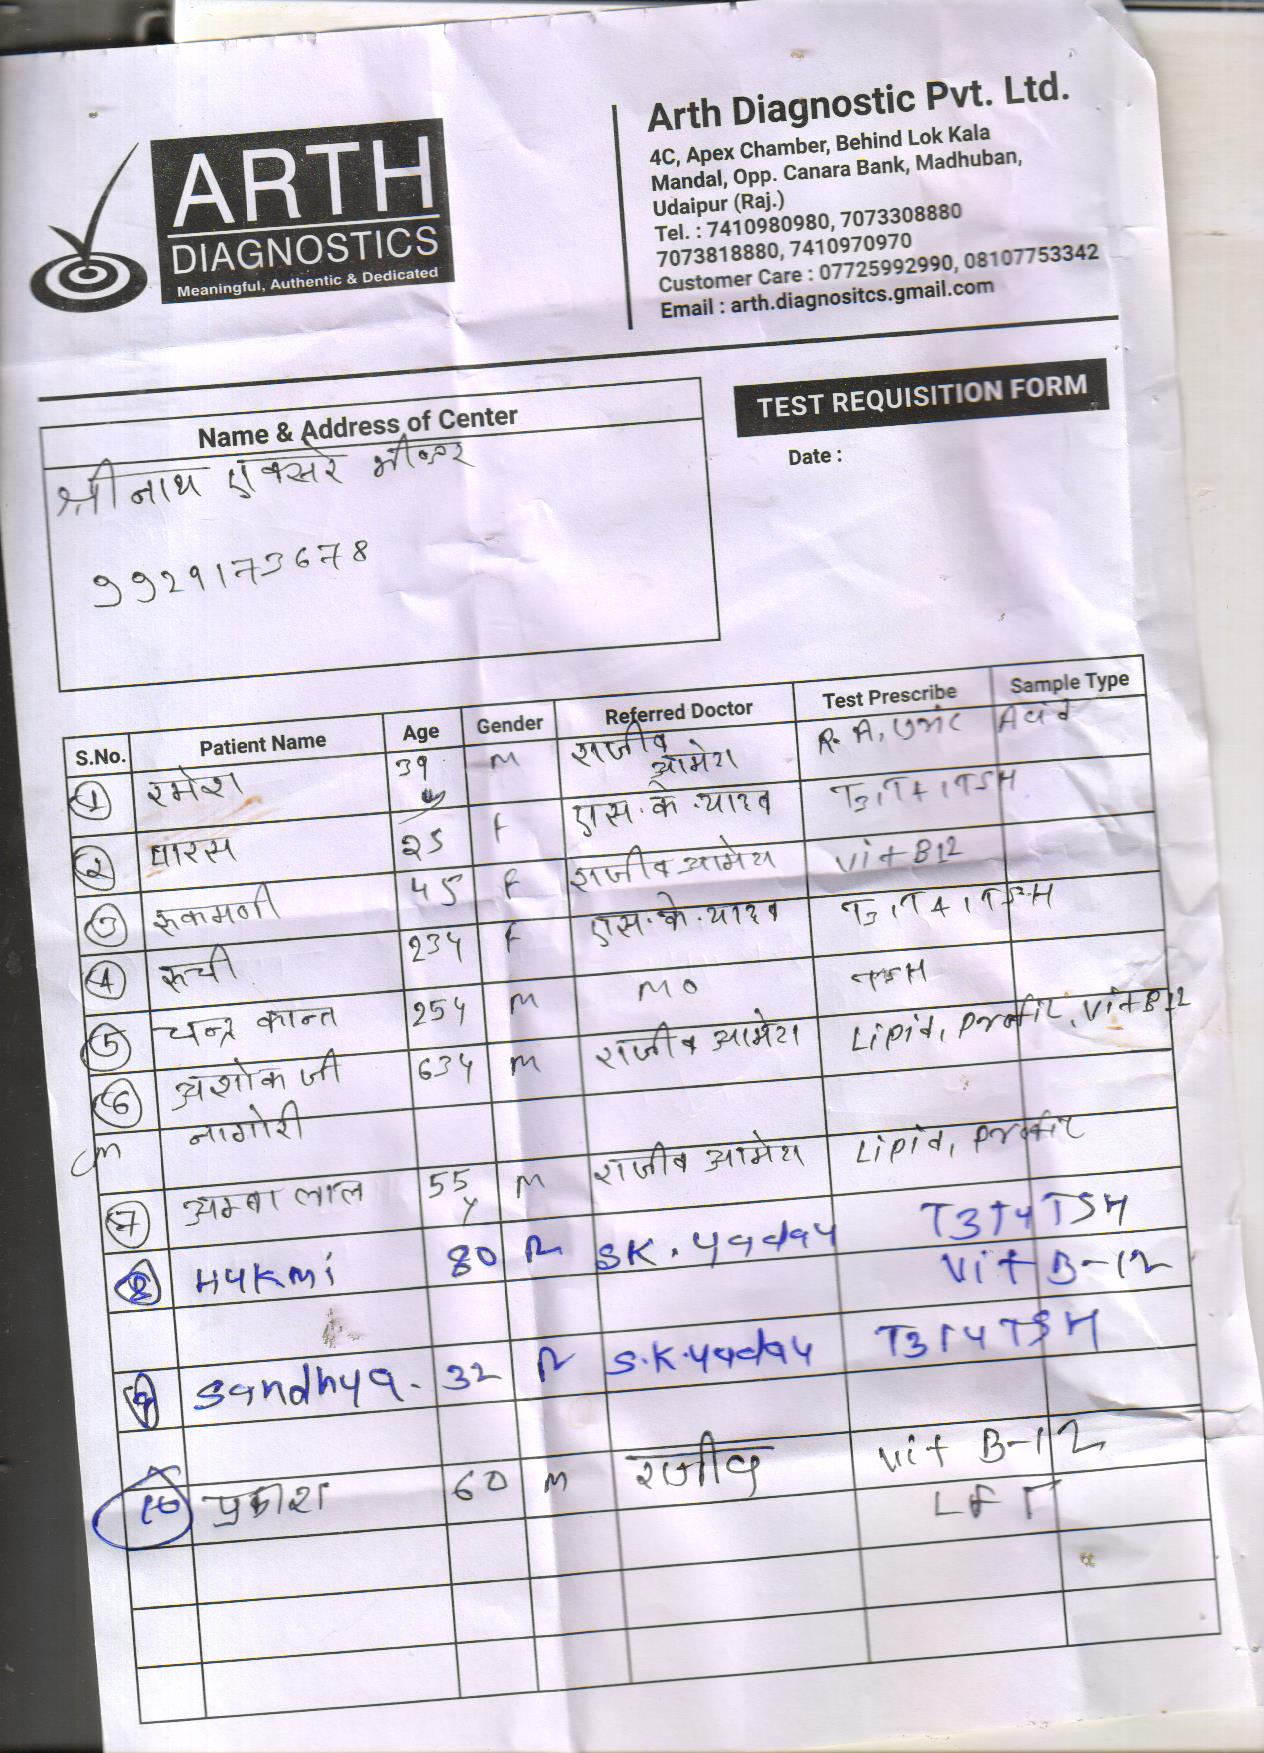 ARTH
DIAGNOSTICS
Meaningful, Authentic & Dedicated
Arth Diagnostic Pvt. Ltd.
4C, Apex Chamber, Behind Lok Kala
Mandal, Opp. Canara Bank, Madhuban,
Udaipur (Raj.)
Tel. : 7410980980, 7073308880
7073818880, 7410970970
Customer Care : 07725992990, 08107753342
Email : arth.diagnositcs.gmail.com
TEST REQUISITION FORM
Date :
Name & Address of Center
श्रीनाथ एक्सरे
9929173678
S.No. Patient Name Age Gender Referred Doctor Test Prescribe Sample Type
1 रमेश 39 y M राजीव आमेटा R.A, Uric Acid
2 पारस 25 F एस.के.यादव T3, T4, TSH
3 रूकमणी 45 F राजीव आमेटा Vit B12
4 रूची 23y F एस.के.यादव T3, T4, TSH
5 चन्द्र कान्त 25y M MO TSH
6 अशोक जी 63y M राजीव आमेटा Lipid, Profile, Vit B12
नागोरी
7 अम्बा लाल 55 y M राजीव आमेटा Lipid, Profile
8 Hukmi 80 SK. Yadav T3 T4 TSH
Vit B-12
9 Sandhya. 32 S.K. Yadav T3 T4 TSH
10 प्रकाश 60 M राजीव Vit B-12
LFT